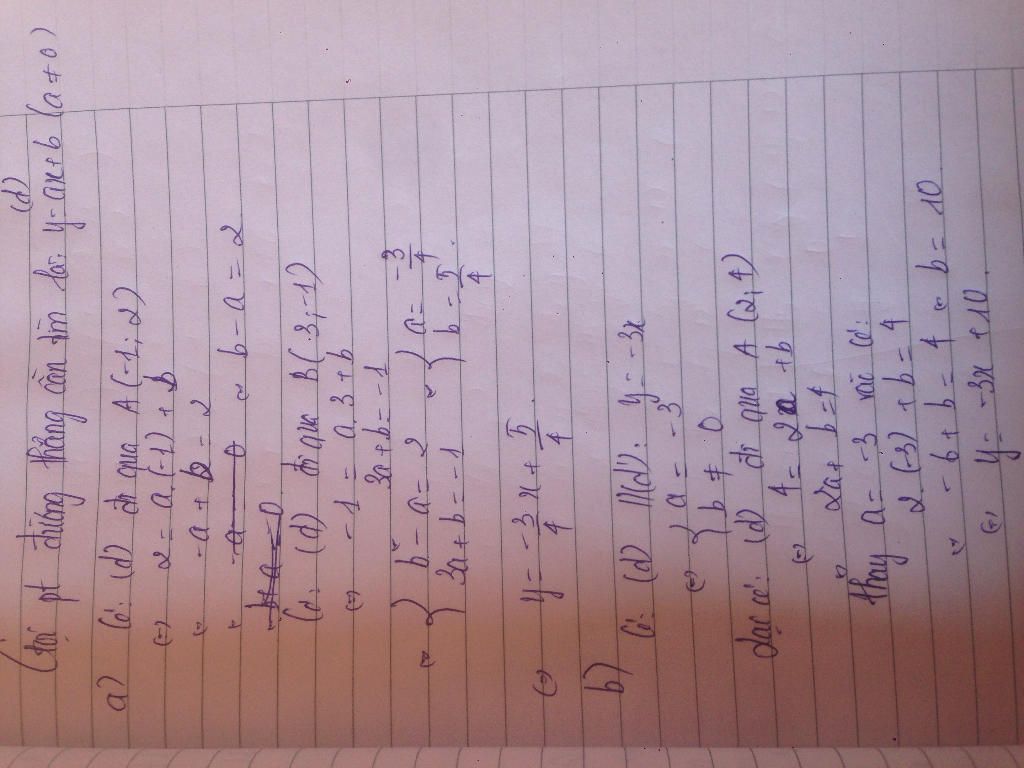 (d)
Gọi pt đường thẳng cần tìm là: y = ax + b (a ≠ 0)
a) Có: (d) đi qua A(-1; 2)
(=) 2 = a.(-1) + b
-a + b = 2
-a 0 b - a = 2
Có: (d) đi qua B(3; -1)
(=) -1 = a.3 + b
3a + b = -1
{ b - a = 2 { a = -3/4
{ 3a + b = -1 { b = 5/4.
(=) y = -3/4 x + 5/4
b) Có: (d) // (d'): y = -3x
(=) { a = -3
{ b ≠ 0
Lại có: (d) đi qua A (2, 4)
(=) 4 = 2a + b
2a + b = 4
Thay a = -3 vào có:
2.(-3) + b = 4
-6 + b = 4 b = 10.
(=) y = -3x + 10.